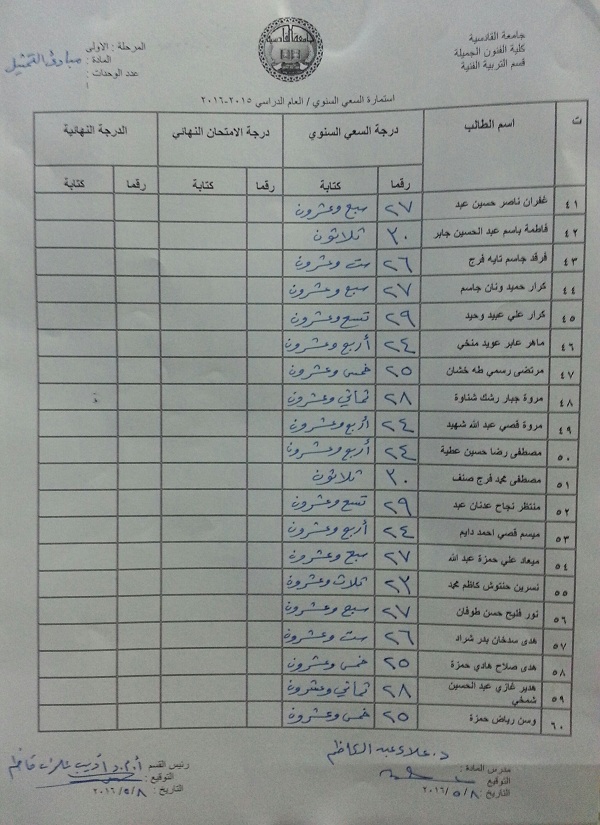 جامعة القادسية
كلية الفنون الجميلة
قسم التربية الفنية
المرحلة : الاولى
المادة : مبادئ التمثيل
عدد الوحدات :
استمارة السعي السنوي / العام الدراسي ٢٠١٥-٢٠١٦
ت اسم الطالب درجة السعي السنوي درجة الامتحان النهائي الدرجة النهائية
رقما كتابة رقما كتابة رقما كتابة
٤١ غفران ناصر حسين عبد ٢٧ سبع وعشرون
٤٢ فاطمة باسم عبد الحسين جابر ٣٠ ثلاثون
٤٣ فرقد جاسم تايه فرج ٢٦ ست وعشرون
٤٤ كرار حميد ونان جاسم ٢٧ سبع وعشرون
٤٥ كرار علي عبيد وحيد ٢٩ تسع وعشرون
٤٦ ماهر عابر عويد منخي ٢٤ أربع وعشرون
٤٧ مرتضى رسمي طه خشان ٢٥ خمس وعشرون
٤٨ مروة جبار رشك شناوة ٢٨ ثماني وعشرون
٤٩ مروة قصي عبد الله شهيد ٢٤ أربع وعشرون
٥٠ مصطفى رضا حسين عطية ٢٤ أربع وعشرون
٥١ مصطفى محمد فرج صنف ٣٠ ثلاثون
٥٢ منتظر نجاح عدنان عبد ٢٩ تسع وعشرون
٥٣ ميسم قصي احمد دايم ٢٤ أربع وعشرون
٥٤ ميعاد علي حمزة عبد الله ٢٧ سبع وعشرون
٥٥ نسرين حنتوش كاظم محمد ٢٣ ثلاث وعشرون
٥٦ نور فليح حسن طوفان ٢٧ سبع وعشرون
٥٧ هدى سدخان بدر شراد ٢٦ ست وعشرون
٥٨ هدى صلاح هادي حمزة ٢٥ خمس وعشرون
٥٩ هدير غازي عبد الحسين شمخي ٢٨ ثماني وعشرون
٦٠ وسن رياض حمزة ٢٥ خمس وعشرون
مدرس المادة : د. علاء عبد الكاظم
التوقيع
التاريخ : ٨/٥/٢٠١٦
رئيس القسم أ.م.د أديب كاظم
التوقيع :
التاريخ : ٨/٥/٢٠١٦